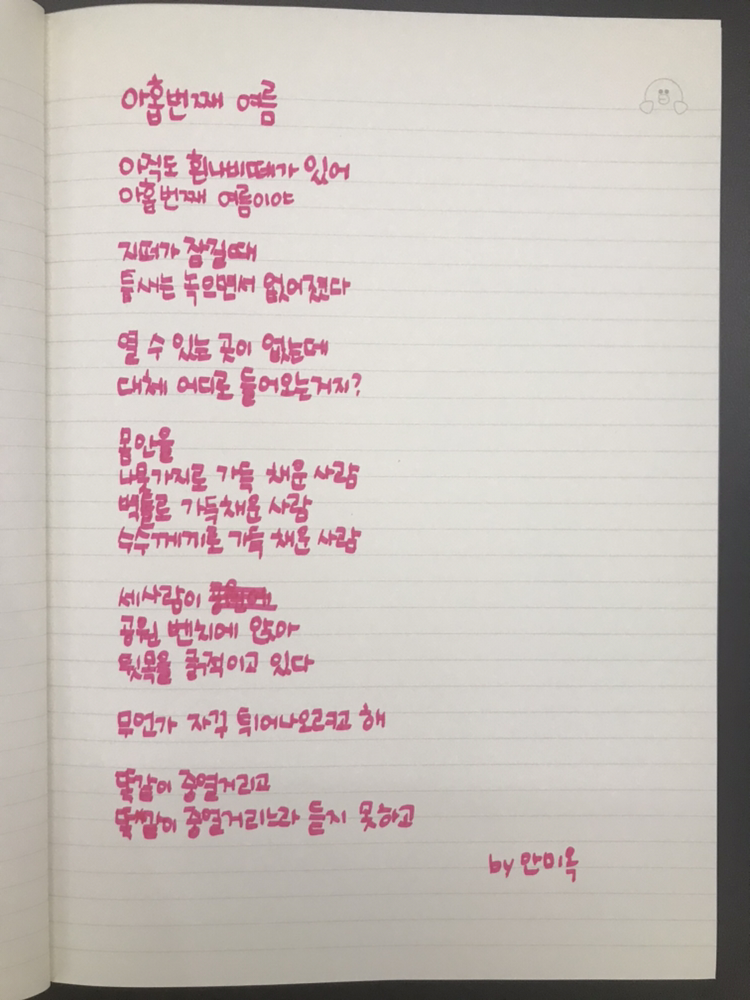 아홉번째 여름
아직도 흰나비떼가 있어
아홉번째 여름이야
지퍼가 잠길때
틈새는 녹으면서 없어졌다
열 수 있는 곳이 없는데
대체 어디로 들어오는거지?
몸안을
나뭇가지로 가득 채운 사람
벽돌로 가득채운 사람
수수께끼로 가득 채운 사람
세사람이
공원 벤치에 앉아
뒷목을 긁적이고 있다
무언가 자꾸 튀어나오려고 해
똑같이 중얼거리고
똑같이 중얼거리느라 듣지 못하고
by 안미옥